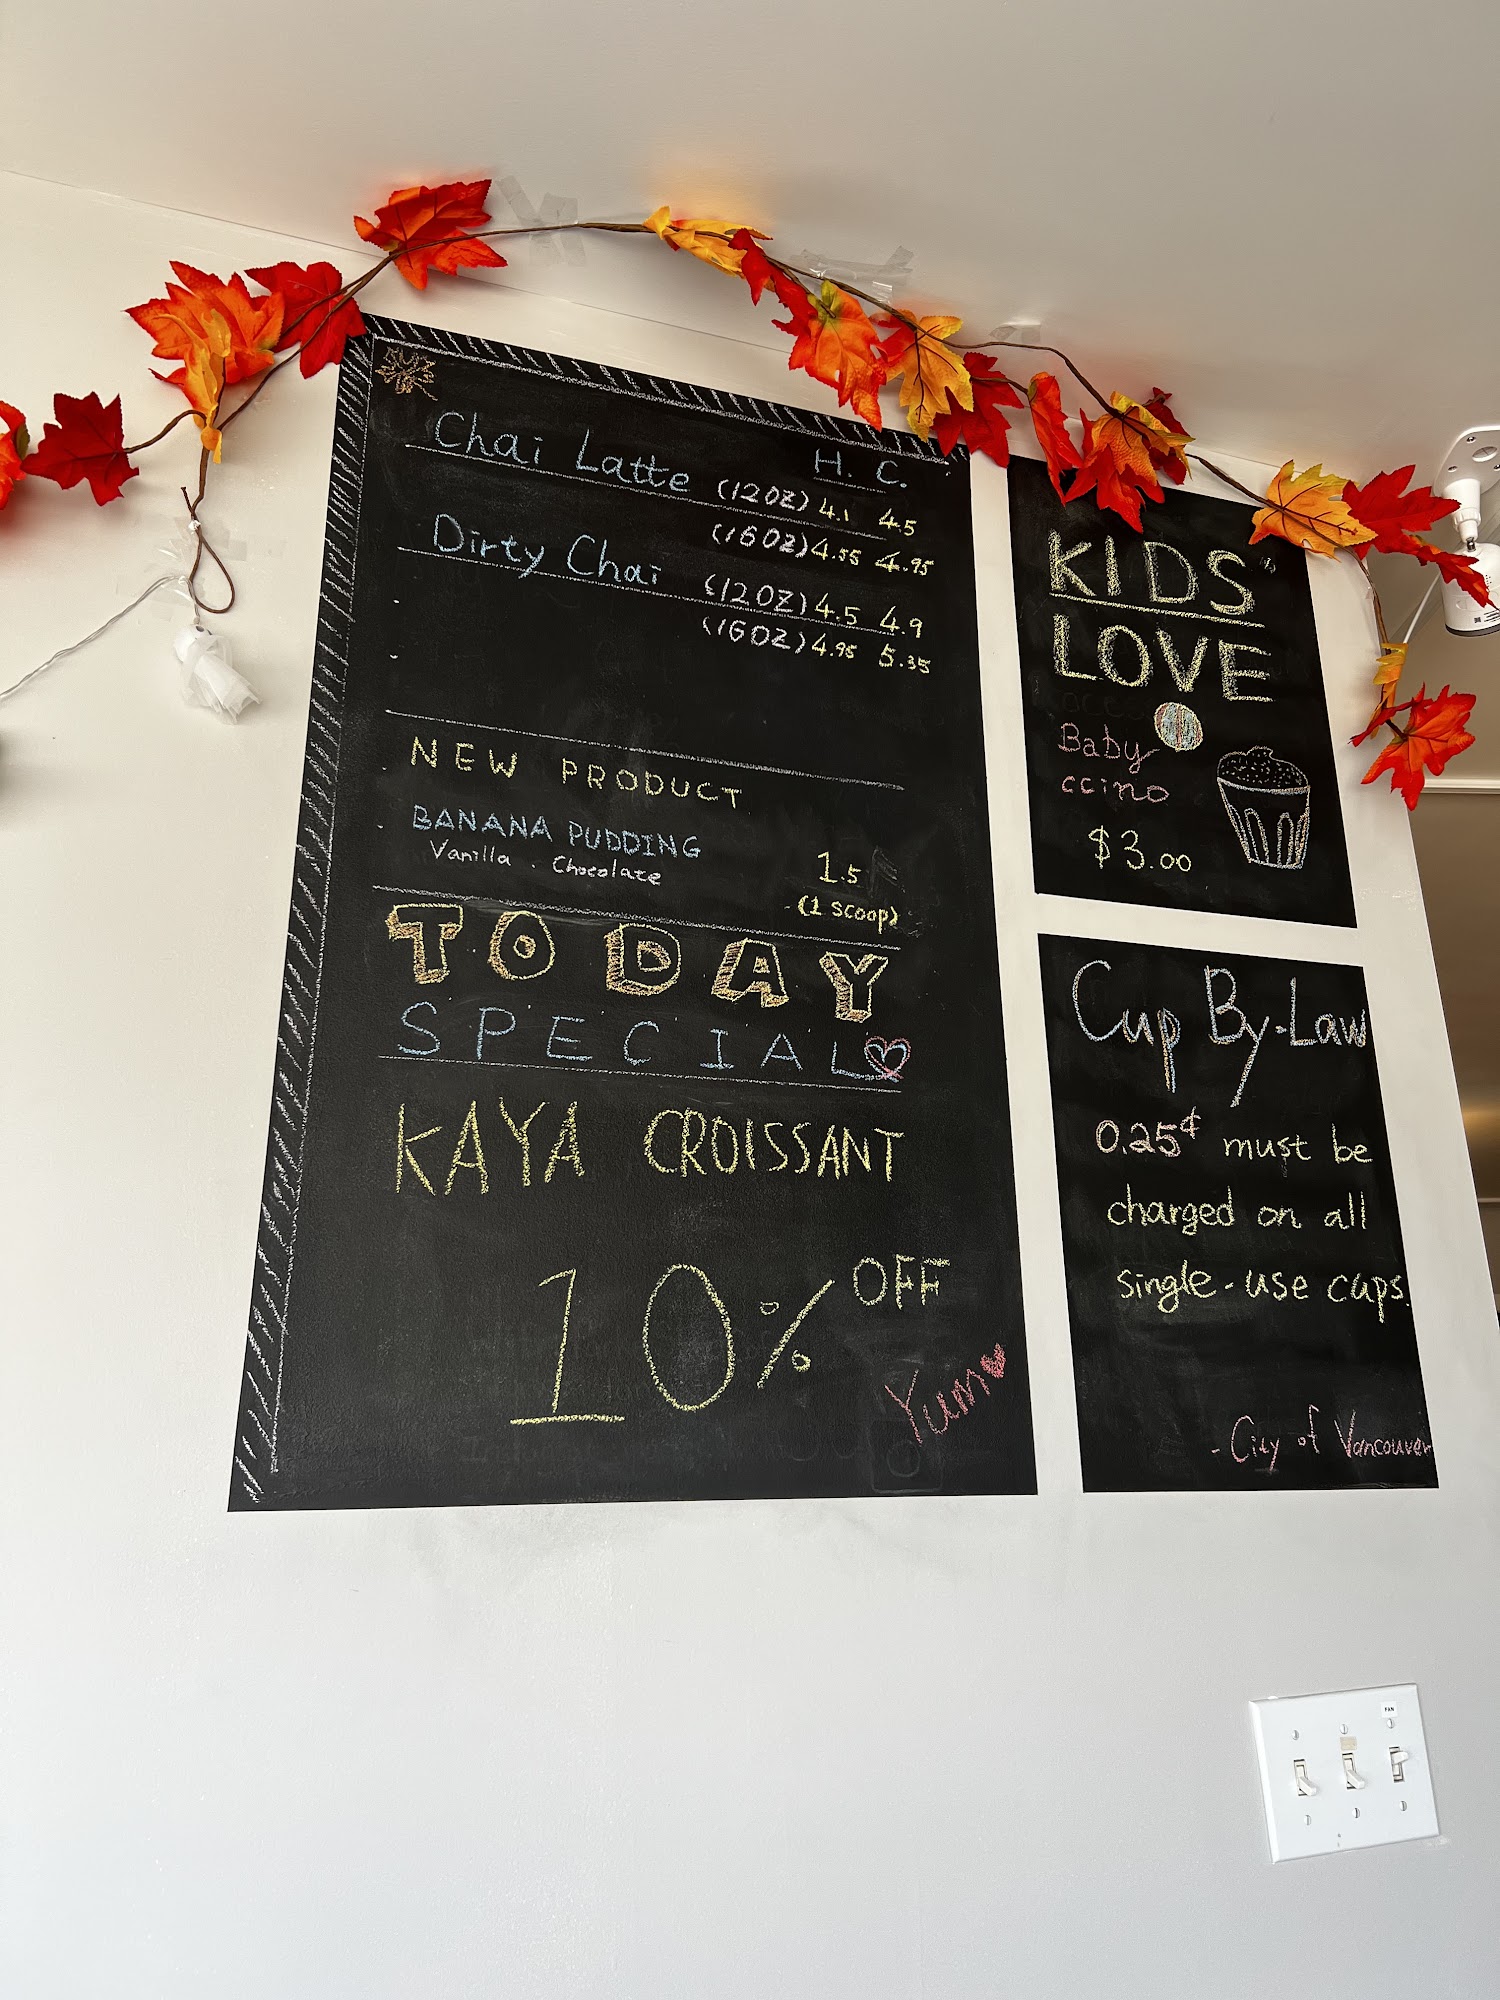 H. C.
Chai Latte (12OZ) 4.1 4.5
(16OZ) 4.55 4.95
Dirty Chai (12OZ) 4.5 4.9
(16OZ) 4.95 5.35
NEW PRODUCT
BANANA PUDDING
Vanilla . Chocolate 1.5
(1 SCOOP)
TODAY
SPECIAL
KAYA CROISSANT
10% OFF
Yum
KIDS
LOVE
Baby
ccino
$3.00
Cup By-Law
0.25¢ must be
charged on all
single-use cups.
- City of Vancouver
FAN